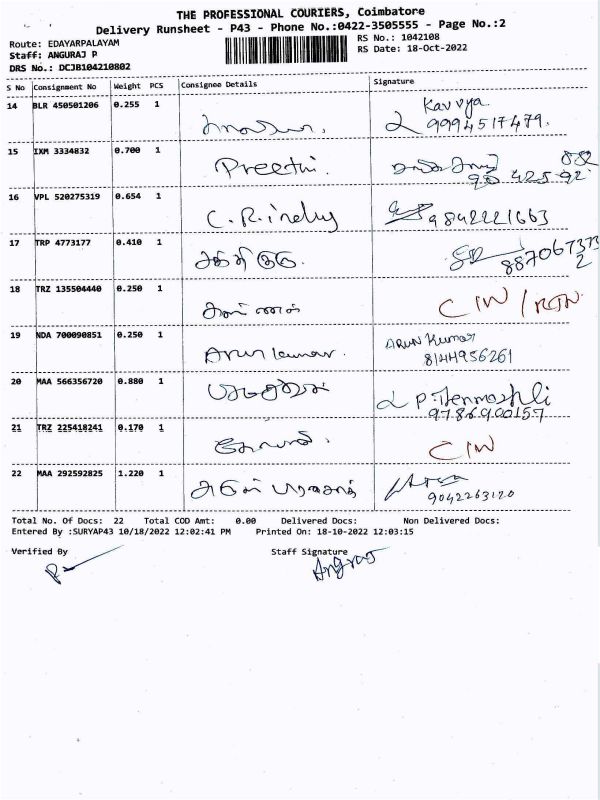 THE PROFESSIONAL COURIERS, Coimbatore
Delivery Runsheet - P43 - Phone No.:0422-3505555 - Page No.:2
Route: EDAYARPALAYAM
Staff: ANGURAJ P
DRS No.: DCJB104210802
RS No.: 1042108
RS Date: 18-Oct-2022
S No Consignment No Weight PCS Consignee Details Signature
14 BLR 450501206 0.255 1 Kavvya
9994517479.
15 IXM 3334832 0.700 1 Preethi.
16 VPL 520275319 0.654 1 C.R.indhy 9842221663
17 TRP 4773177 0.410 1 சக்தி குரு. 8870673732
18 TRZ 135504440 0.250 1 C IW / RTN
19 NDA 700090851 0.250 1 Arun kumar. ARUN Kumar
8144956261
20 MAA 566356720 0.880 1
9786900157
21 TRZ 225418241 0.170 1 C IW
22 MAA 292592825 1.220 1
9042263120
Total No. Of Docs: 22 Total COD Amt: 0.00 Delivered Docs: Non Delivered Docs:
Entered By :SURYAP43 10/18/2022 12:02:41 PM Printed On: 18-10-2022 12:03:15
Verified By Staff Signature
Angraj